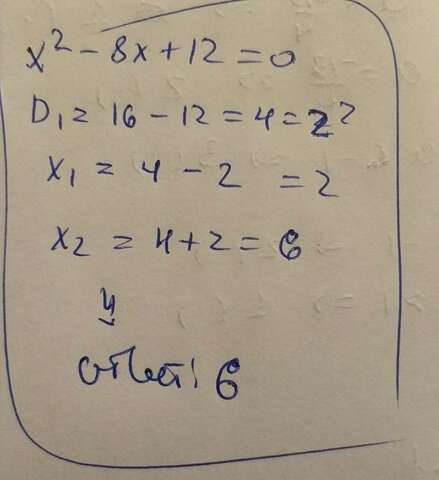 x² - 8x + 12 = 0
D₁ = 16 - 12 = 4 = 2²
x₁ = 4 - 2 = 2
x₂ = 4 + 2 = 6
Ответ: 6